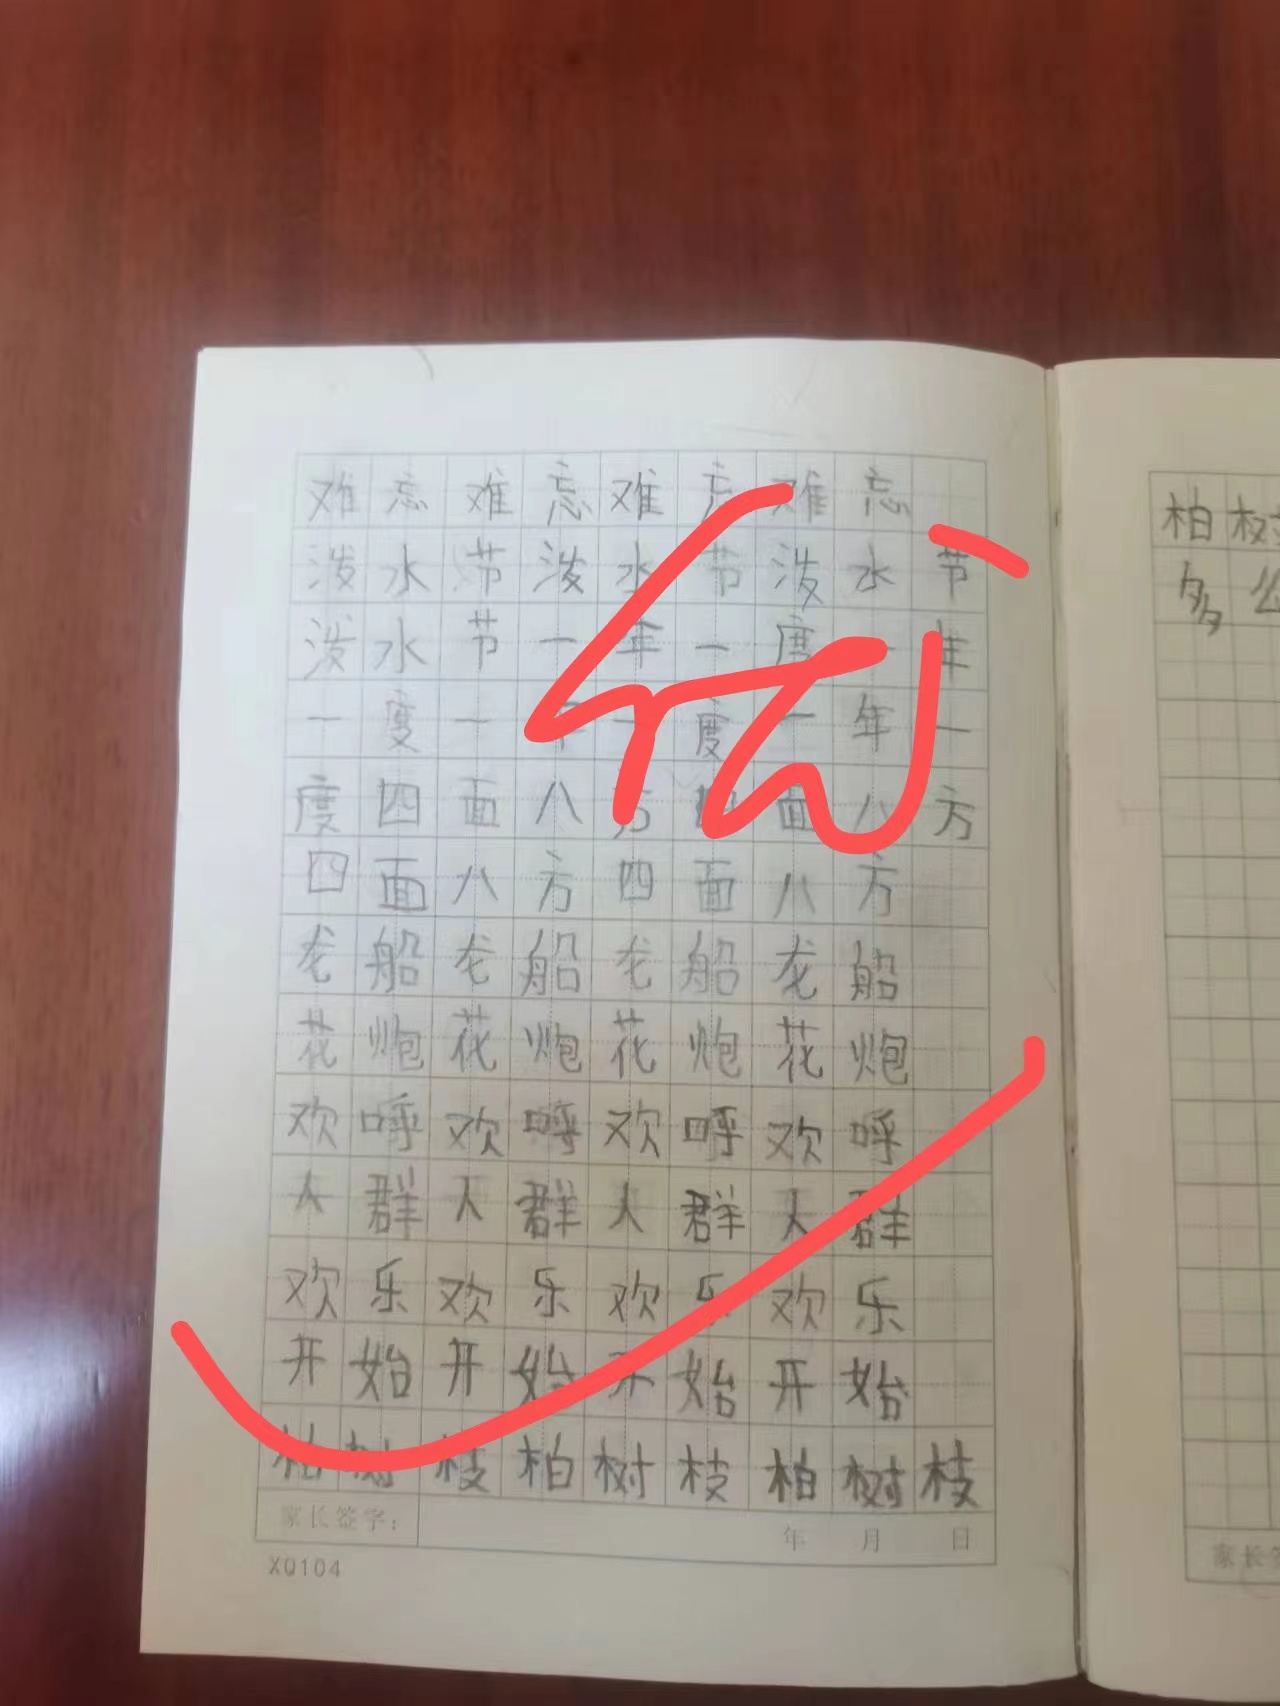 难忘难忘难忘难忘
泼水节泼水节泼水节
泼水节一年一度一年
一度一年一度一年一
度四面八方四面八方
四面八方四面八方
龙船龙船龙船龙船
花炮花炮花炮花炮
欢呼欢呼欢呼欢呼
人群人群人群人群
欢乐欢乐欢乐欢乐
开始开始开始开始
柏树枝柏树枝柏树枝
家长签字： 年 月 日
XQ104
柏树
多
家长